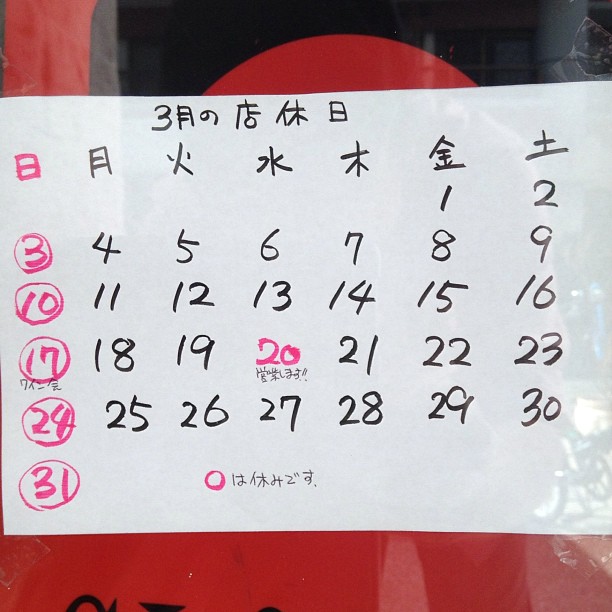 3月の店休日
日 月 火 水 木 金 土
1 2
3 4 5 6 7 8 9
10 11 12 13 14 15 16
17 18 19 20 21 22 23
ワイン会 営業します!!
24 25 26 27 28 29 30
31 ○は休みです.